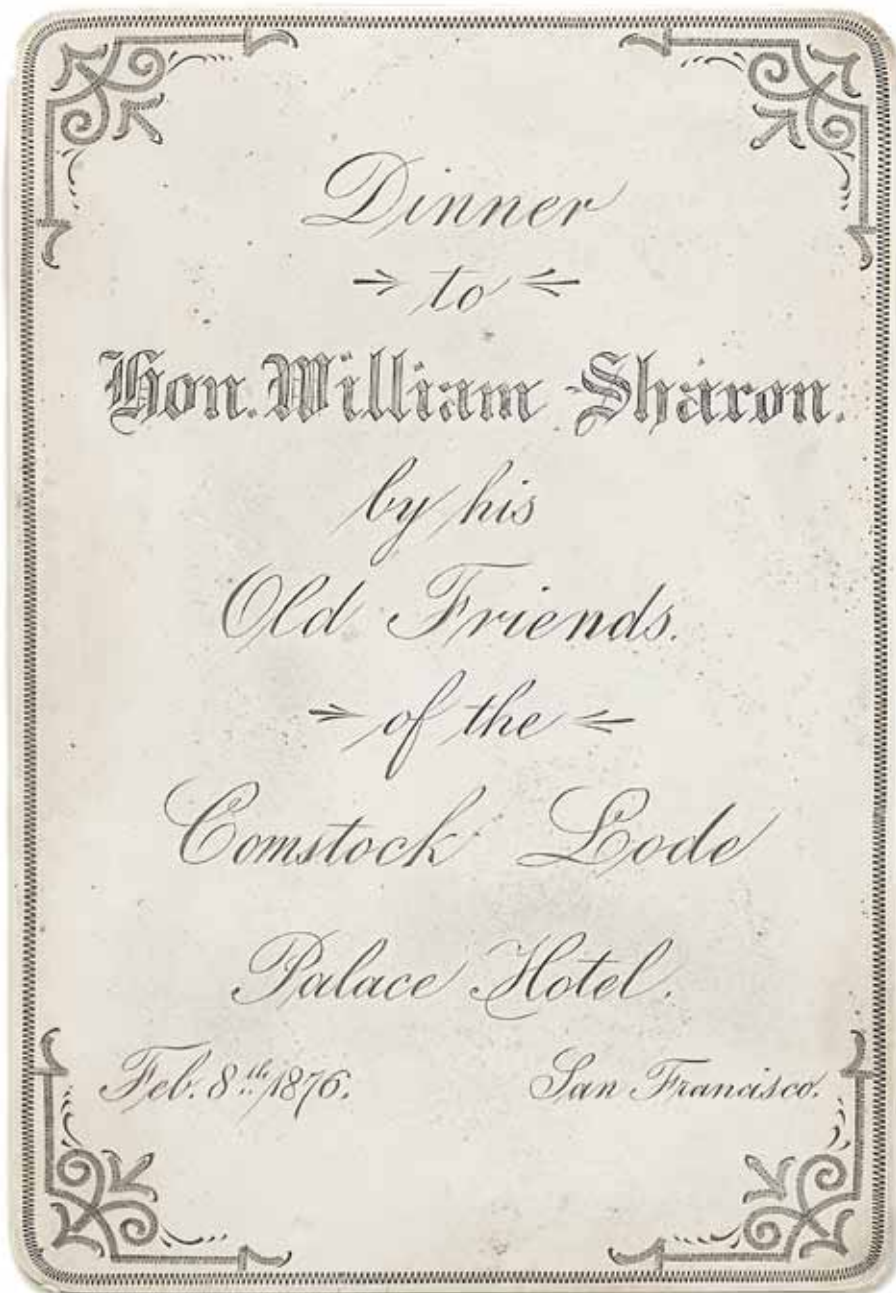 Dinner
to
Hon. William Sharon.
by his
Old Friends.
of the
Comstock Lode
Palace Hotel.
Feb. 8th 1876. San Francisco.